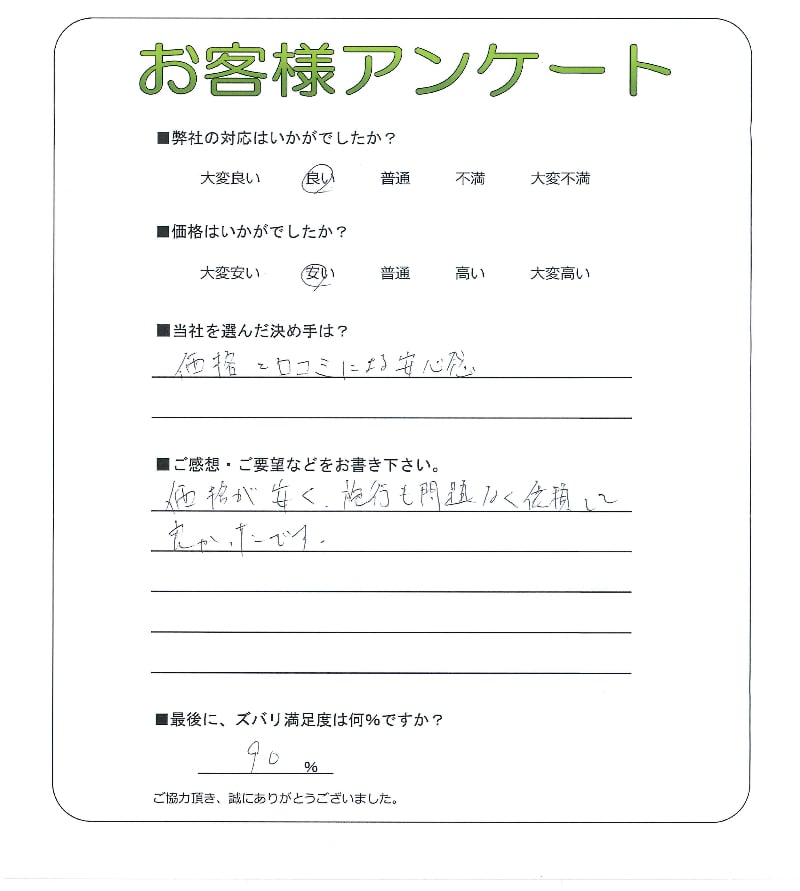 お客様アンケート
■弊社の対応はいかがでしたか？
大変良い 良い 普通 不満 大変不満
■価格はいかがでしたか？
大変安い 安い 普通 高い 大変高い
■当社を選んだ決め手は？
価格と口コミによる安心感
■ご感想・ご要望などをお書き下さい。
価格が安く、施行も問題なく依頼して
良かったです。
■最後に、ズバリ満足度は何%ですか？
90 %
ご協力頂き、誠にありがとうございました。